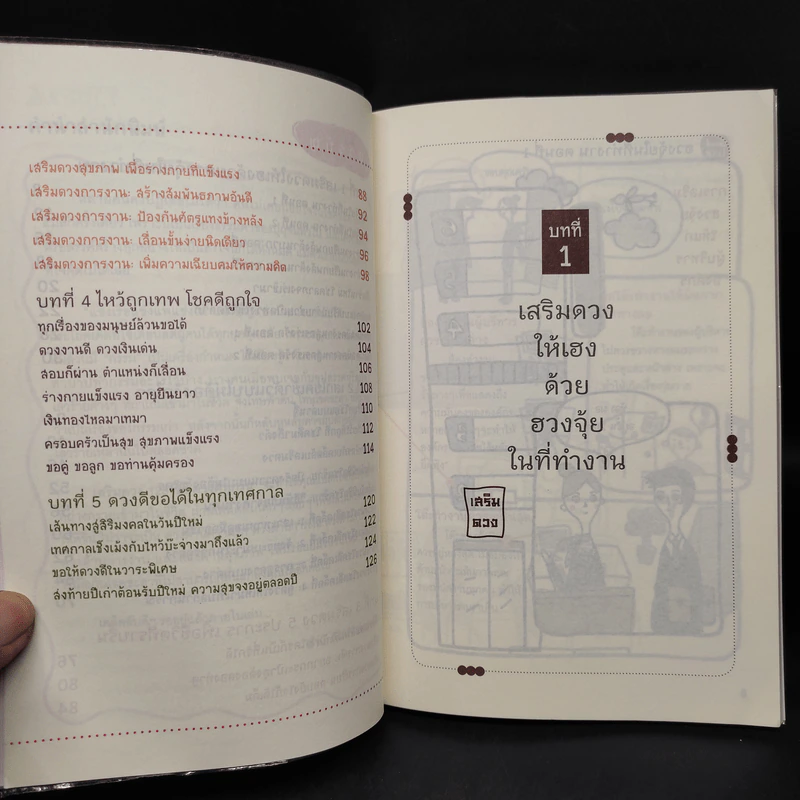 เสริมดวงสุขภาพ เพื่อร่างกายที่แข็งแรง 88
เสริมดวงการงาน: สร้างสัมพันธภาพอันดี 92
เสริมดวงการงาน: ป้องกันศัตรูแทงข้างหลัง 94
เสริมดวงการงาน: เลื่อนขั้นง่ายนิดเดียว 96
เสริมดวงการงาน: เพิ่มความเฉียบคมให้ความคิด 98
บทที่ 4 ไหว้ถูกเทพ โชคดีถูกใจ
ทุกเรื่องของมนุษย์ล้วนขอได้ 102
ดวงงานดี ดวงเงินเด่น 104
สอบก็ผ่าน ตำแหน่งก็เลื่อน 106
ร่างกายแข็งแรง อายุยืนยาว 108
เงินทองไหลมาเทมา 110
ครอบครัวเป็นสุข สุขภาพแข็งแรง 112
ขอคู่ ขอลูก ขอท่านคุ้มครอง 114
บทที่ 5 ดวงดีขอได้ในทุกเทศกาล
เส้นทางสู่สิริมงคลในวันปีใหม่ 120
เทศกาลเช็งเม้งกับไหว้บ๊ะจ่างมาถึงแล้ว 122
ขอให้ดวงดีในวาระพิเศษ 124
ส่งท้ายปีเก่าต้อนรับปีใหม่ ความสุขจงอยู่ตลอดปี 126
บทที่
1
เสริมดวง
ให้เฮง
ด้วย
ฮวงจุ้ย
ในที่ทำงาน
เสริม
ดวง